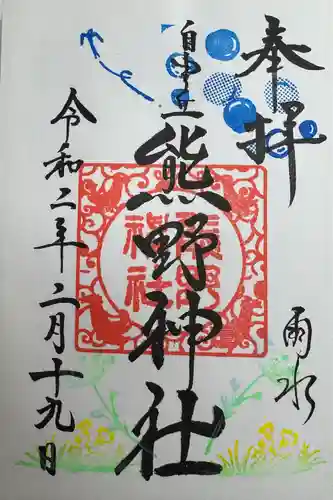 奉拝
雨水
自由が丘
熊野神社
熊野
神社
令和二年二月十九日